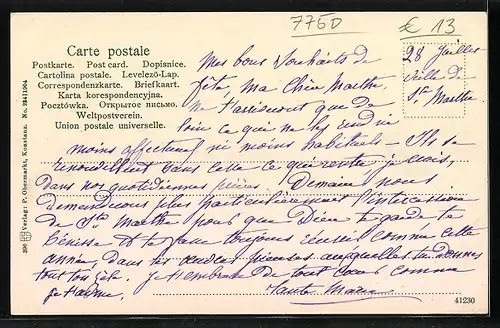 776D
€ 13
Carte postale
Postkarte. Post card. Dopisnice.
Cartolina postale. Levelező-Lap.
Correspondenzkarte. Briefkaart.
Karta korespondencyjna.
Pocztówka. Открытое письмо.
Weltpostverein.
Union postale universelle.
396 Verlag: P. Obermarkt, Konstanz. No. 28411904
28 Juillet
Ville de
Ste Marthe
Mes bons Souhaits de
fête, ma Chère Marthe,
ne t'arriveront que de
loin ce qui ne les rendra
moins affectueux ni moins habituels - Ils se
renouvellent sans cesse ce qui reste, je crois,
dans nos quotidiennes prières. Demain nous
demanderons plus particulièrement l'intercession
de Ste Marthe pour que Dieu te garde te
bénisse et te fasse toujours réussir comme cette
année, dans tes pieuses auxquelles tu donnes
tout ton zèle. Je t'embrasse de tout cœur comme
je t'aime. Tante Marie
41230